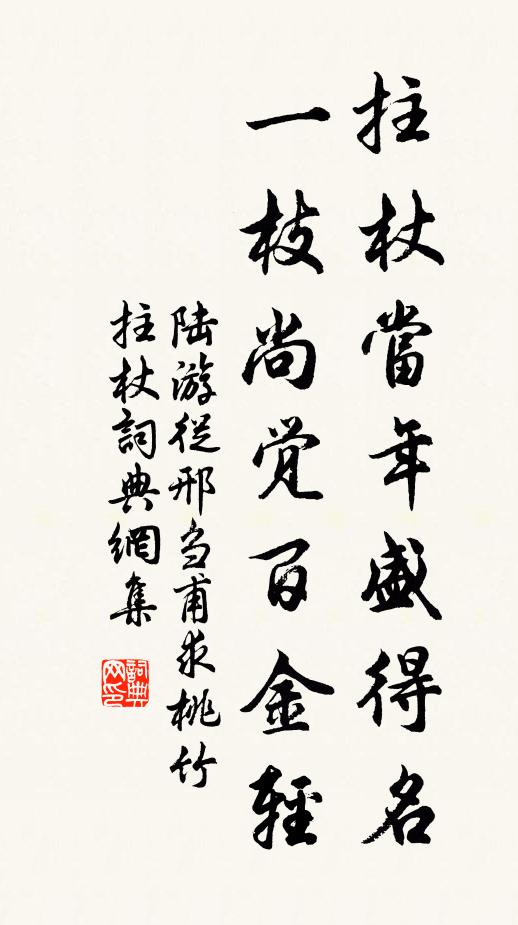 拄杖當年盛得名
一枝尚覺百金輕
陸游從邢芻甫求桃竹
拄杖詞典網集
詞典网印